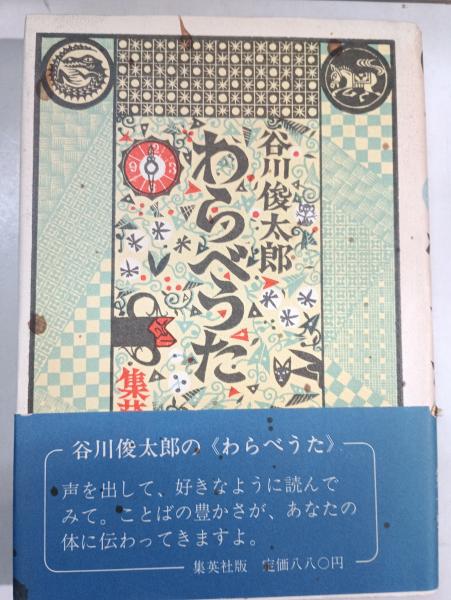 谷川俊太郎
わらべうた
集
谷川俊太郎の《わらべうた》
声を出して、好きなように読んで
みて。ことばの豊かさが、あなたの
体に伝わってきますよ。
集英社版 定価八八〇円